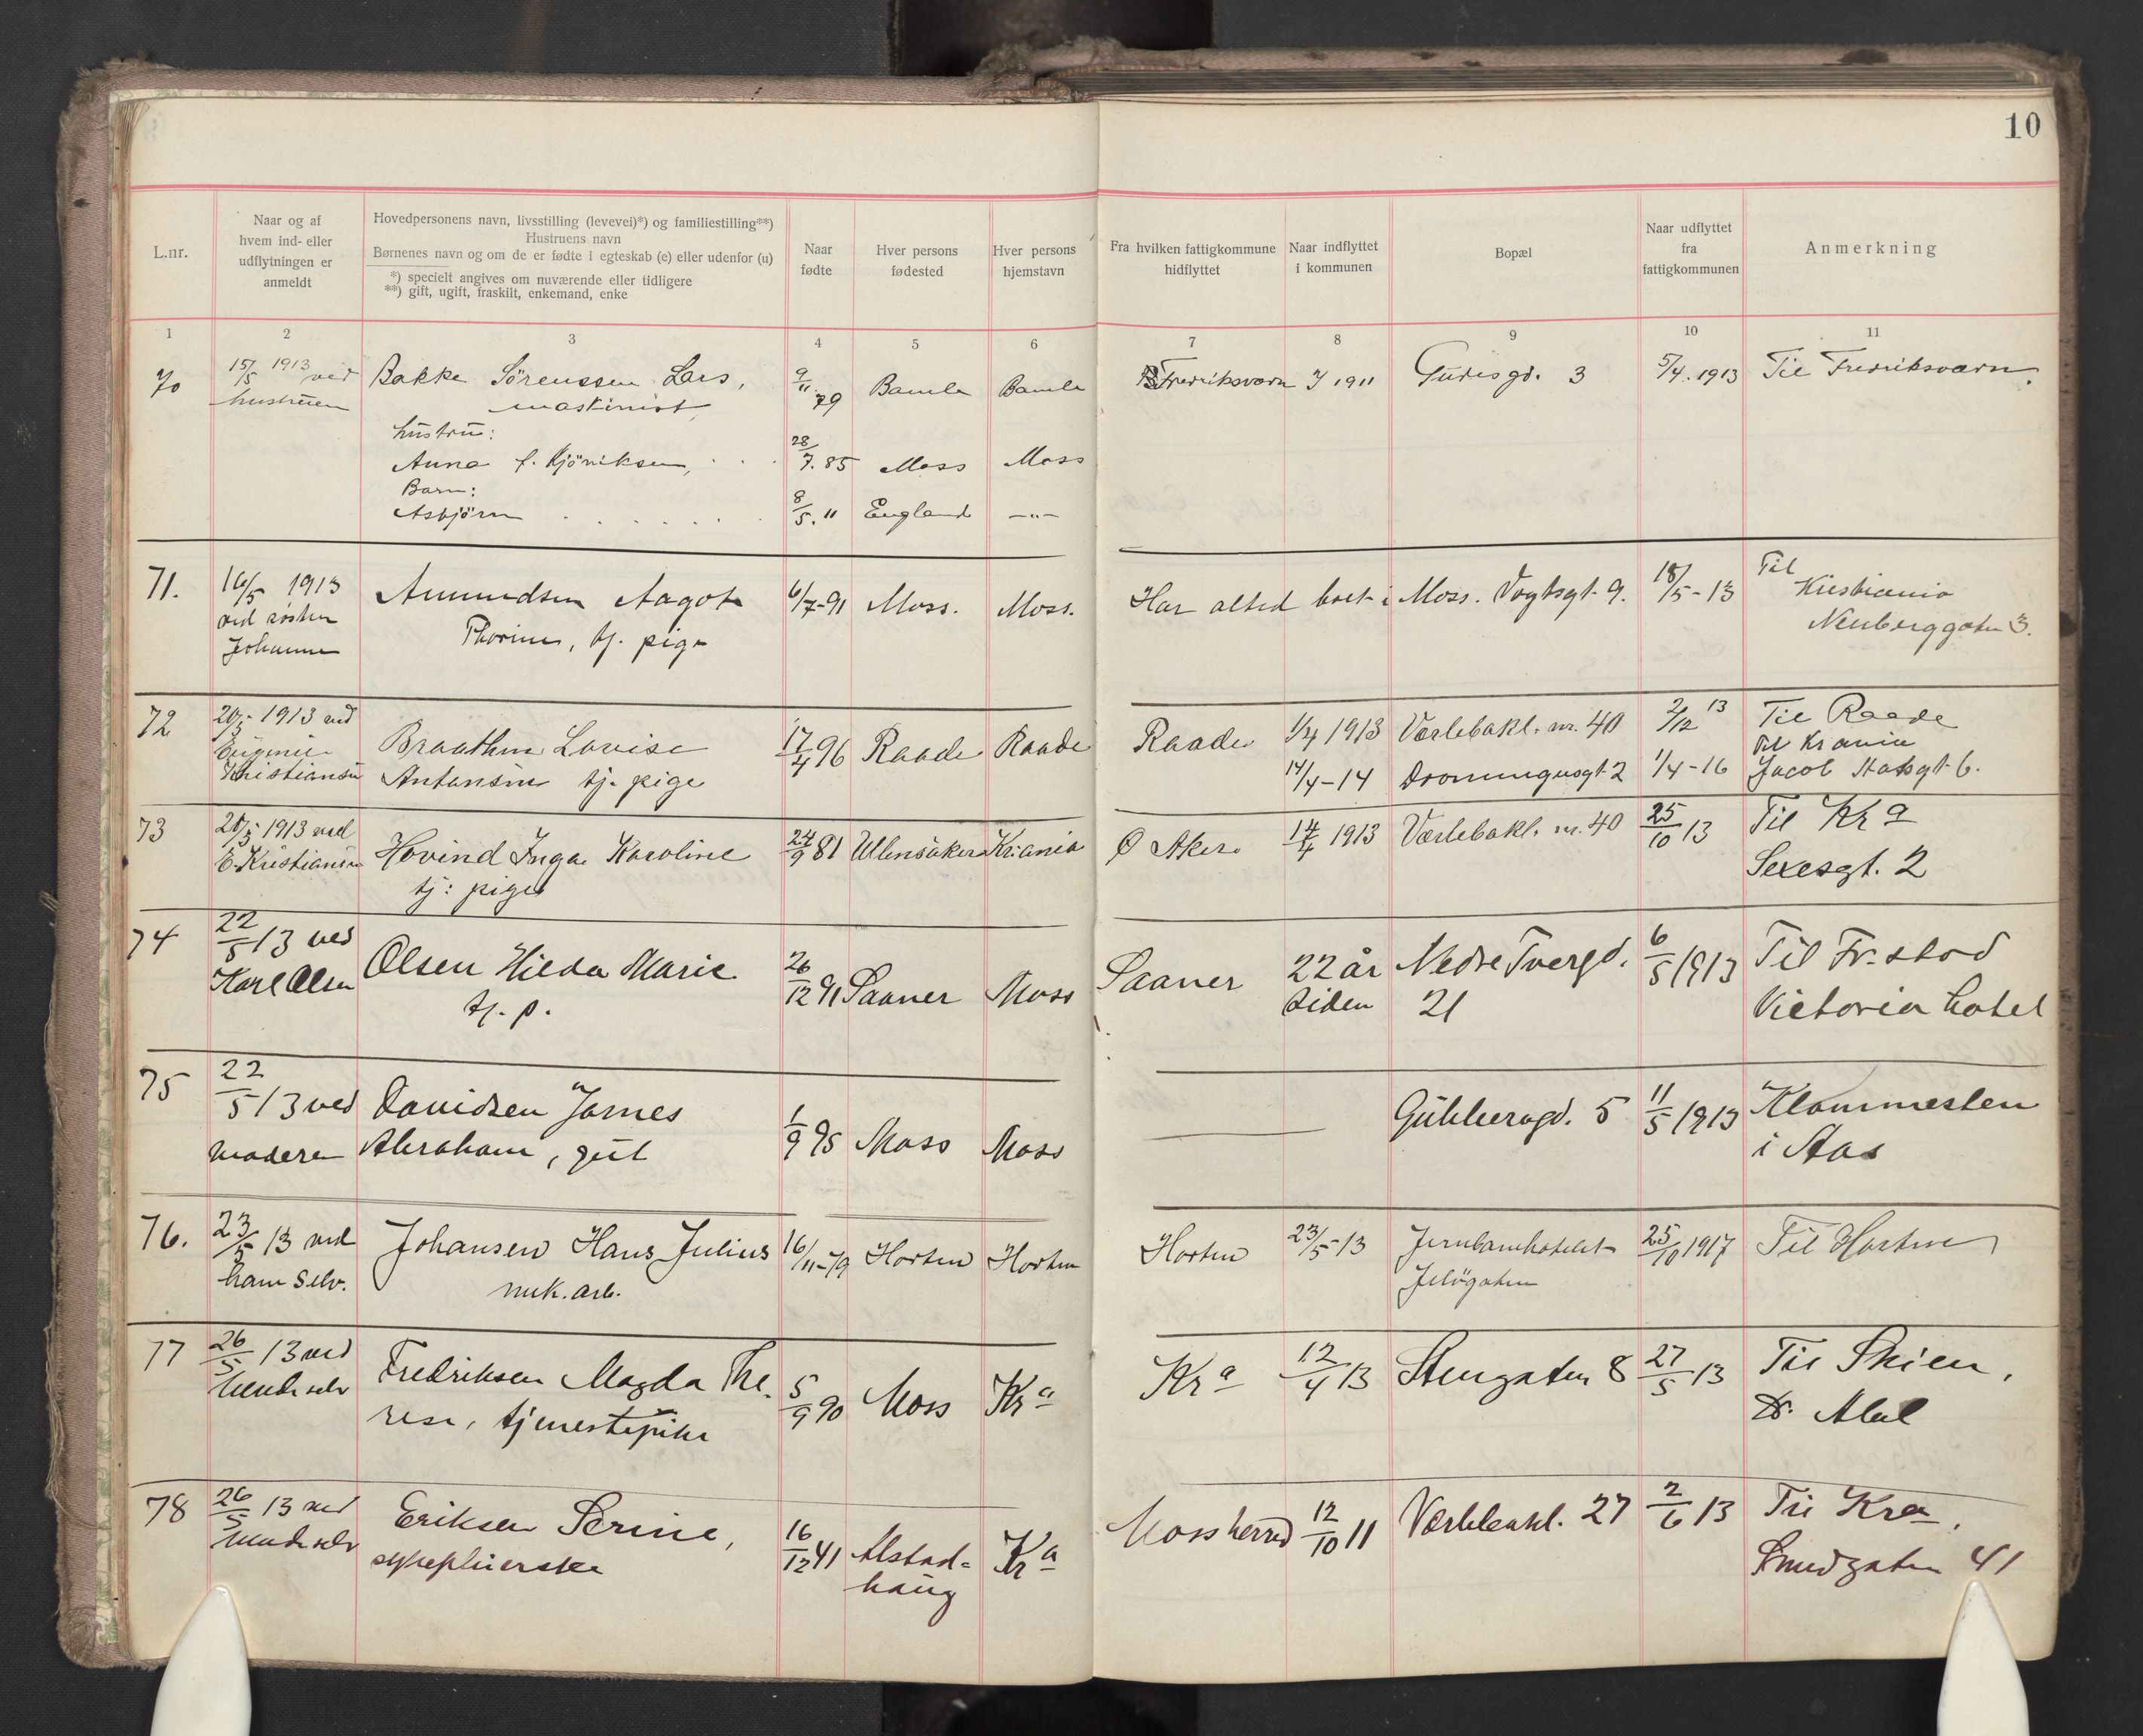 10
L.nr.
Naar og af
hvem ind- eller
udflytningen er
anmeldt
Hovedpersonens navn, livsstilling (levevei)*) og familiestilling**)
Hustruens navn
Børnenes navn og om de er fødte i egteskab (e) eller udenfor (u)
*) specielt angives om nuværende eller tidligere
**) gift, ugift, fraskilt, enkemand, enke
Naar
fødte
Hver persons
fødested
Hver persons
hjemstavn
Fra hvilken fattigkommune
hidflyttet
Naar indflyttet
i kommunen
Bopæl
Naar udflyttet
fra
fattigkommunen
Anmerkning
1 2 3 4 5 6 7 8 9 10 11
70 15/5 1913 ved Bakke Sörenssen Lars, 9/11 79 Bamle Bamle Fredriksværn 1911 3 5/4. 1913 Til Fredriksværn.
hustruen maskinist
hustru:
Anna f. 28/7. 85 Moss Moss
Barn:
Asbjörn 8/5. 11 England —"—
71. 16/5 1913 Amundsen Aagot 6/7-91 Moss. Moss. Har altid boet i Moss. Vogtsgt. 9. 18/5-13 Til
ved søster Thorine, tj. pige Kristiania
Johanne 3.
72 20/5 1913 ved Braathen Lovise 17/4 96 Raade Raade Raade 1/4 1913 Værlebakk. nr. 40 2/12 13 Til Raade
Eugenie Til Krania
Kristiansen Antonsine tj. pige 14/4-14 Dronningensgt 2 1/4-16 Jacob Halsgt 6.
73 20/5 1913 ved Hovind Inga Karoline 24/9 81 Ullensaker Kriania Ø Aker 14/4 1913 Værlebakk. nr. 40 25/10 13 Til Kra
E. Kristiansen tj: pige Sexesgt. 2
74 22/5 13 ved Olsen Hilda Marie 26/12 91 Saaner Moss Saaner 22 år Nedre Tvergd. 6/5 1913 Til Fr.stad
Karl Olsen tj. p. siden 21 Victoria hotel
75 22/5 13 ved Davidsen James 1/9 95 Moss Moss 5 11/5 1913
moderen Abraham, gut i Aas
76. 23/5 13 ved Johansen Hans Julius 16/11-79 Horten Horten Horten 23/5-13 Jernbanehotellet 25/10 1917 Til Horten
ham selv. mek. arb. Jelögaten
77 26/5 13 ved Fredriksen Magda The- 5/9 90 Moss Kra Kra 12/4 13 Stengaten 8 27/5 13 Til Skien,
hende selv rese, tjenestepike Dr. Abel
78 26/5 13 ved Eriksen Serine, 16/12 41 Alstad- Kra Moss herred 12/10 11 Værlebakk. 27 2/6 13 Til Kra,
hende selv sykepleierske haug Smedgaten 41